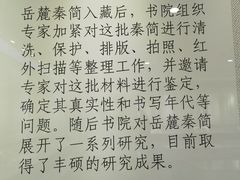 岳麓秦简入藏后，书院组织
专家加紧对这批秦简进行清
洗、保护、排版、拍照、红
外扫描等整理工作，并邀请
专家对这批材料进行鉴定，
确定其真实性和书写年代等
问题。随后书院对岳麓秦简
展开了一系列研究，目前取
得了丰硕的研究成果。